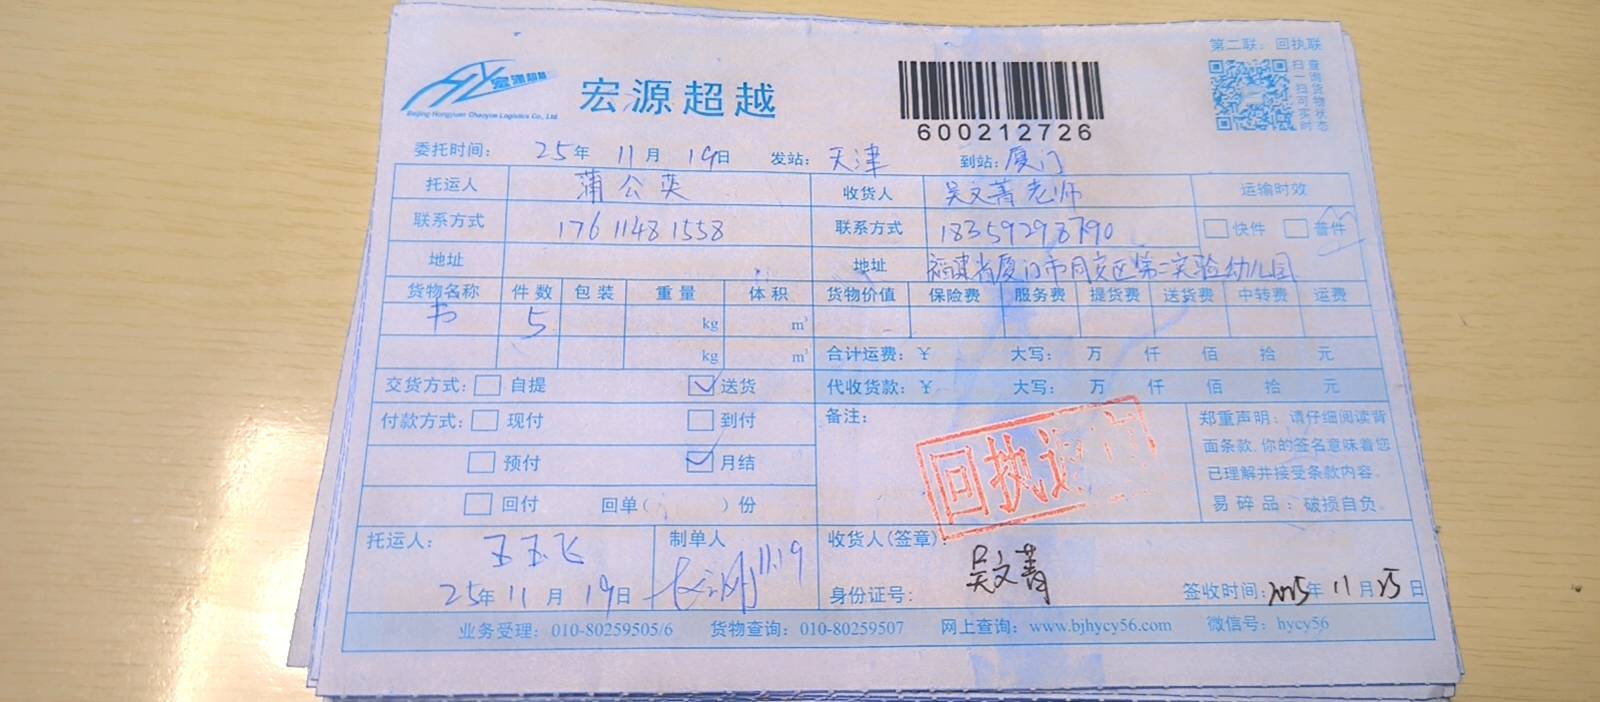 第二联：回执联
宏源超越
宏源超越
Beijing Hongyuan Chaoyue Logistics Co., Ltd.
扫一扫可实时
查询货物状态
600212726
委托时间： 25年 11月 19日 发站：天津 到站：厦门
托运人 蒲公英 收货人 吴文菁老师 运输时效
联系方式 17611481558 联系方式 18359298790 快件 普件
地址 地址 福建省厦门市同安区第二实验幼儿园
货物名称 件数 包装 重量 体积 货物价值 保险费 服务费 提货费 送货费 中转费 运费
书 5 kg m³
kg m³ 合计运费：￥ 大写： 万 仟 佰 拾 元
交货方式： 自提 送货 代收货款：￥ 大写： 万 仟 佰 拾 元
付款方式： 现付 到付 备注：
预付 月结
回付 回单（ ）份
回执
郑重声明：请仔细阅读背
面条款，你的签名意味着您
已理解并接受条款内容。
易碎品：破损自负。
托运人： 王玉飞 制单人 11.19 收货人(签章)： 吴文菁
25年 11月 19日 身份证号： 签收时间：2025年 11月 25日
业务受理：010-80259505/6 货物查询：010-80259507 网上查询：www.bjhycy56.com 微信号：hycy56